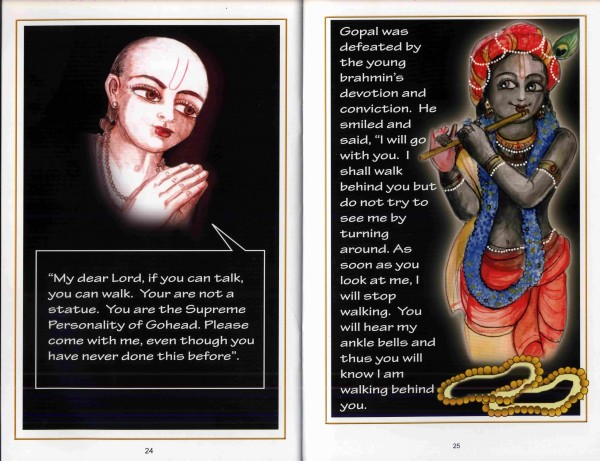 "My dear Lord, if you can talk,
you can walk. Your are not a
statue. You are the Supreme
Personality of Gohead. Please
come with me, even though you
have never done this before".
24
Gopal was
defeated by
the young
brahmin's
devotion and
conviction. He
smiled and
said, "I will go
with you. I
shall walk
behind you but
do not try to
see me by
turning
around. As
soon as you
look at me, I
will stop
walking. You
will hear my
ankle bells and
thus you will
know I am
walking behind
you.
25